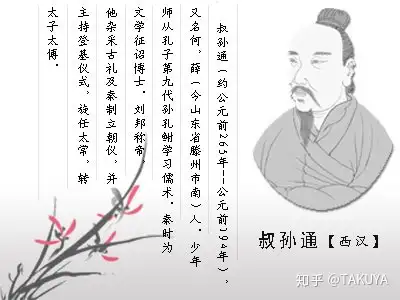 叔孙通（约公元前265年--公元前194年），
又名何，薛（今山东省滕州市南）人。少年
师从孔子第九代孙孔鲋学习儒术。秦时为
文学征诏博士。刘邦称帝
他杂采古礼及秦制立朝仪，并
主持登基仪式，旋任太常，转
太子太傅。
叔孙通【西汉】
知乎 @TAKUYA